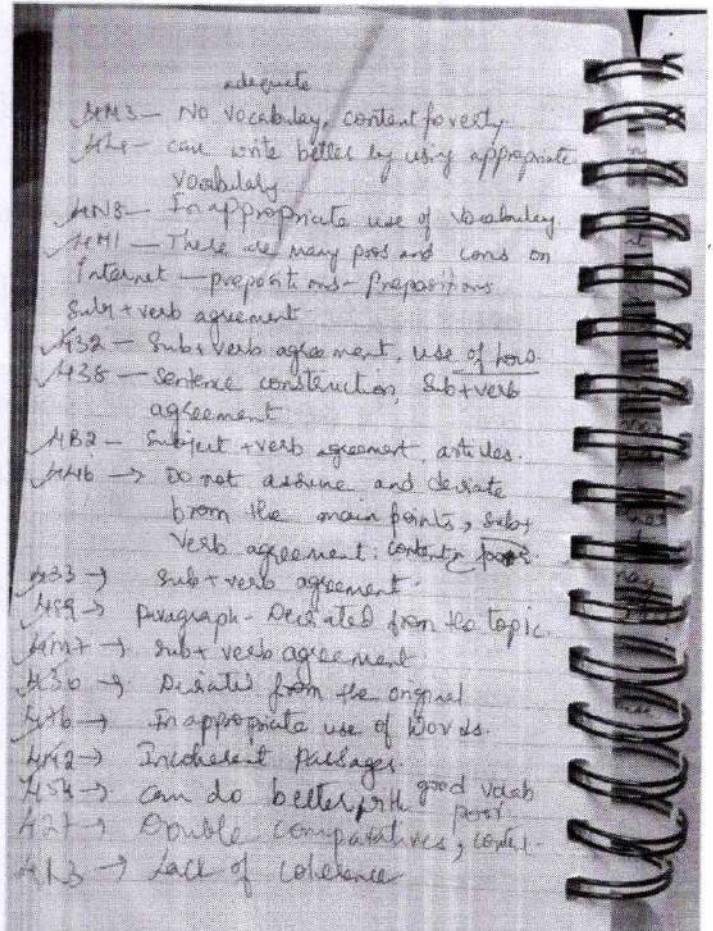 adequate
4M3 - No vocabulay, content poverty
can write better by using appropriate
vocabulaly
4N8 - Inappropriate use of vocabuley
4M1 - There are many pros and cons on
Internet - prepositions - Prepositions
Sub + verb agreement
432 - Sub + verb agreement, use of
438 - sentence construction, Sub + verb
agreement
4B2 - Subject + verb agreement, articles.
→ Do not assume and deviate
from the main points, sub +
verb agreement: content
433 → sub + verb agreement.
→ paragraph - Deviated from the topic.
→ sub + verb agreement
→ Deviated from the original
→ Inappropriate use of Words.
→ Incoherent Passages.
→ can do better with good vocab
→ Double comparatives, poor
→ Lack of coherence